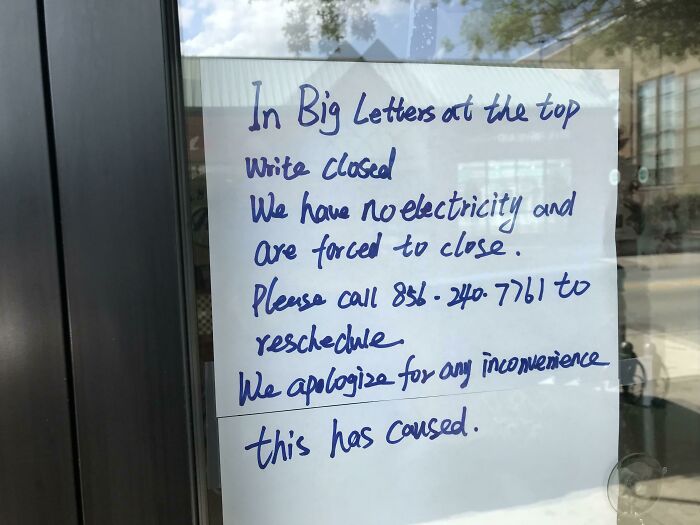 In Big Letters at the top
Write closed
We have no electricity and
are forced to close.
Please call 856-240-7761 to
reschedule.
We apologize for any inconvenience
this has caused.